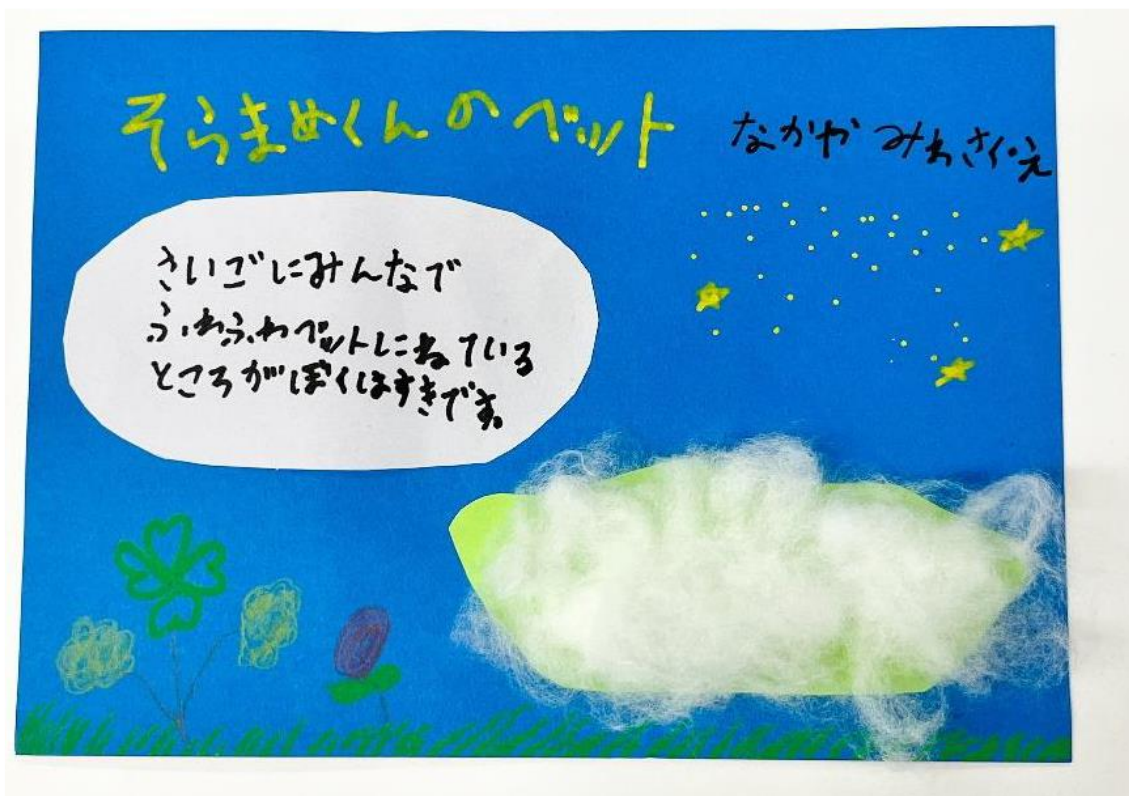 そらまめくんのベット
なかや みわ さく・え
さいごにみんなで
ふわふわベットにねている
ところがぼくはすきです。